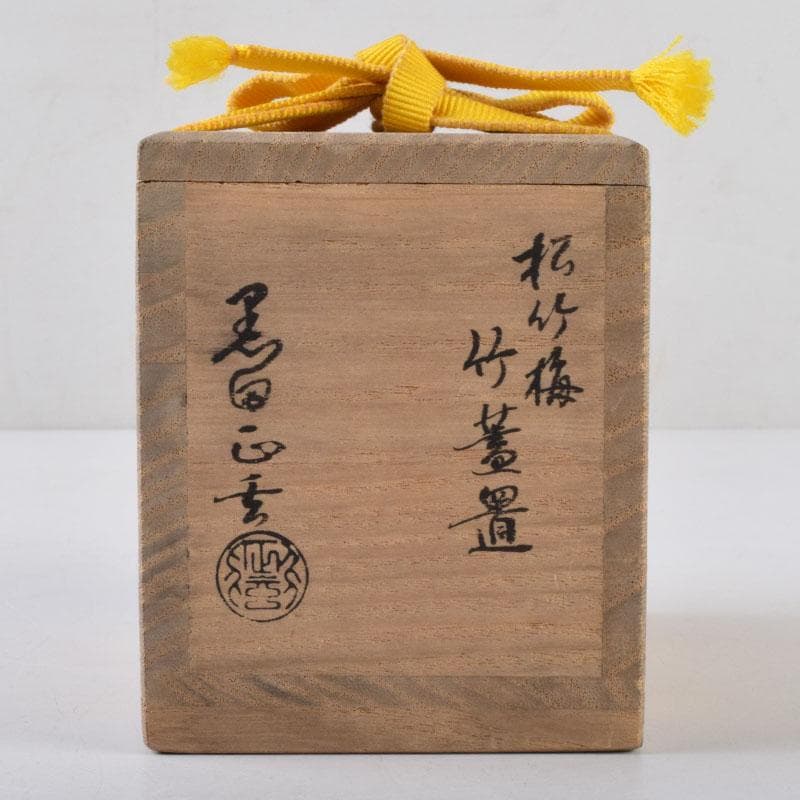 松竹梅
竹蓋置
黒田正玄